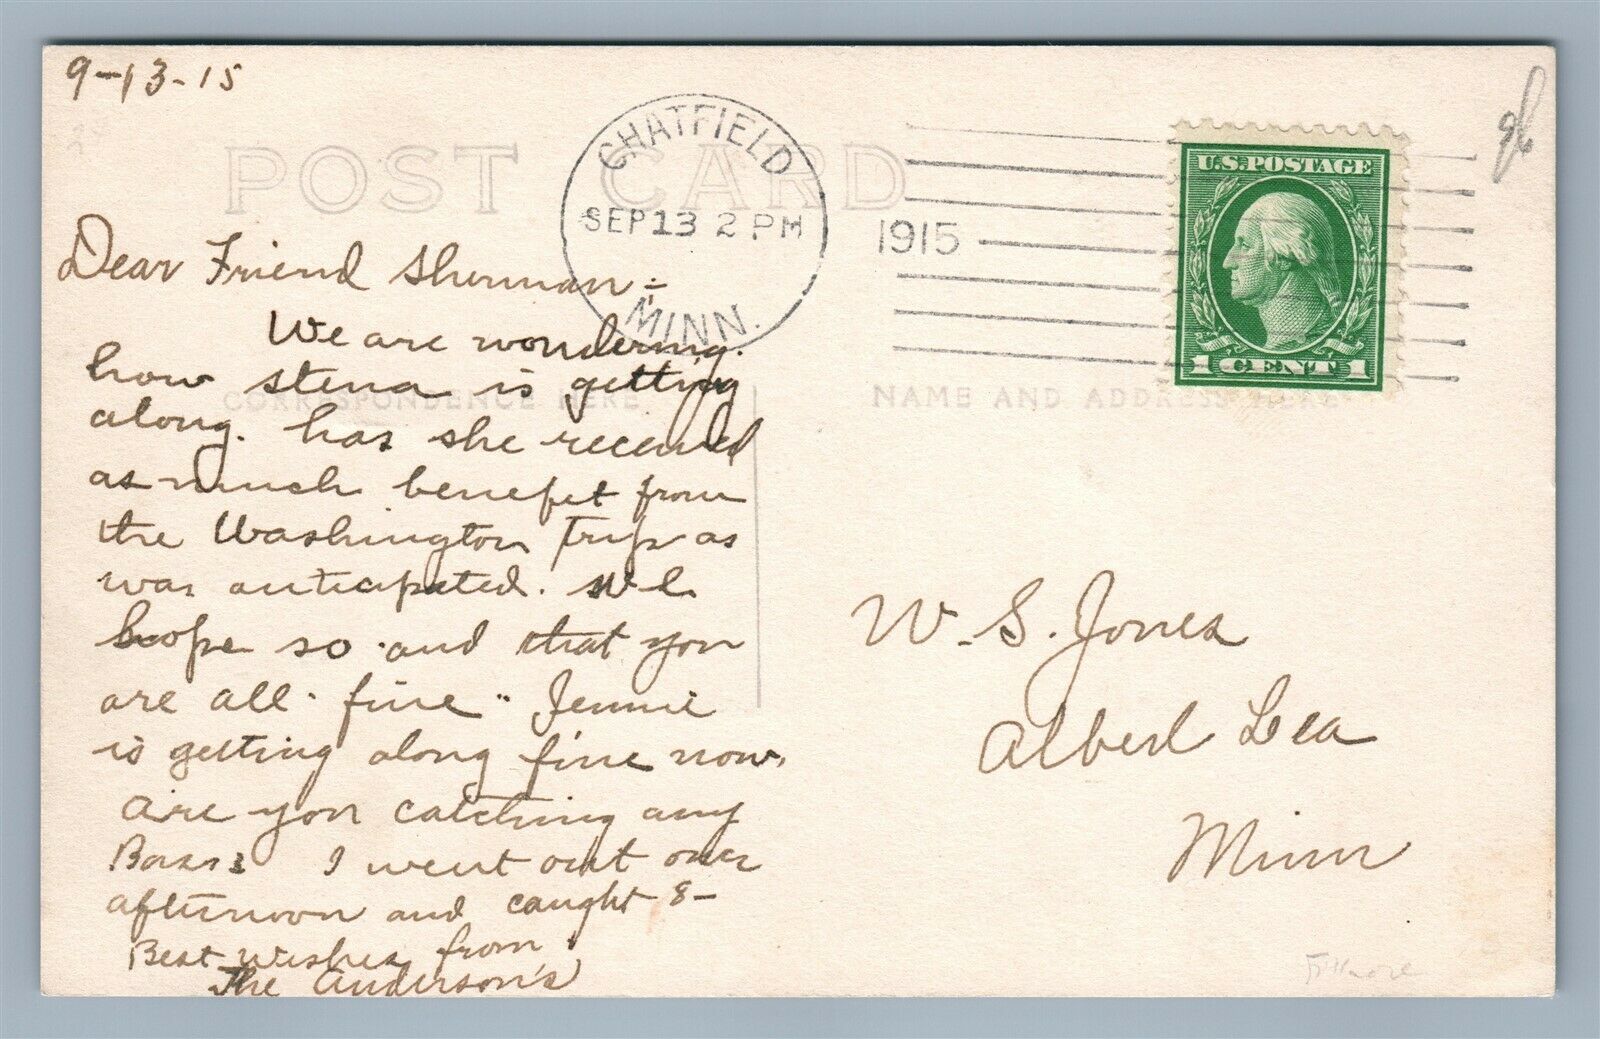 9-13-15
POST CARD
CHATFIELD
SEP 13 2 PM
1915
MINN.
U.S. POSTAGE
1 CENT 1
CORRESPONDENCE HERE
NAME AND ADDRESS HERE
Dear Friend Sherman:-
We are wondering.
how Stena is getting
along. has she received
as much benefit from
the Washington Trip as
was anticipated. We
hope so and that you
are all fine. Jennie
is getting along fine now.
are you catching any
Bass? I went out one
afternoon and caught 8-
Best Wishes from
The Anderson's
W. S. Jones
Albert Lea
Minn
Fillmore